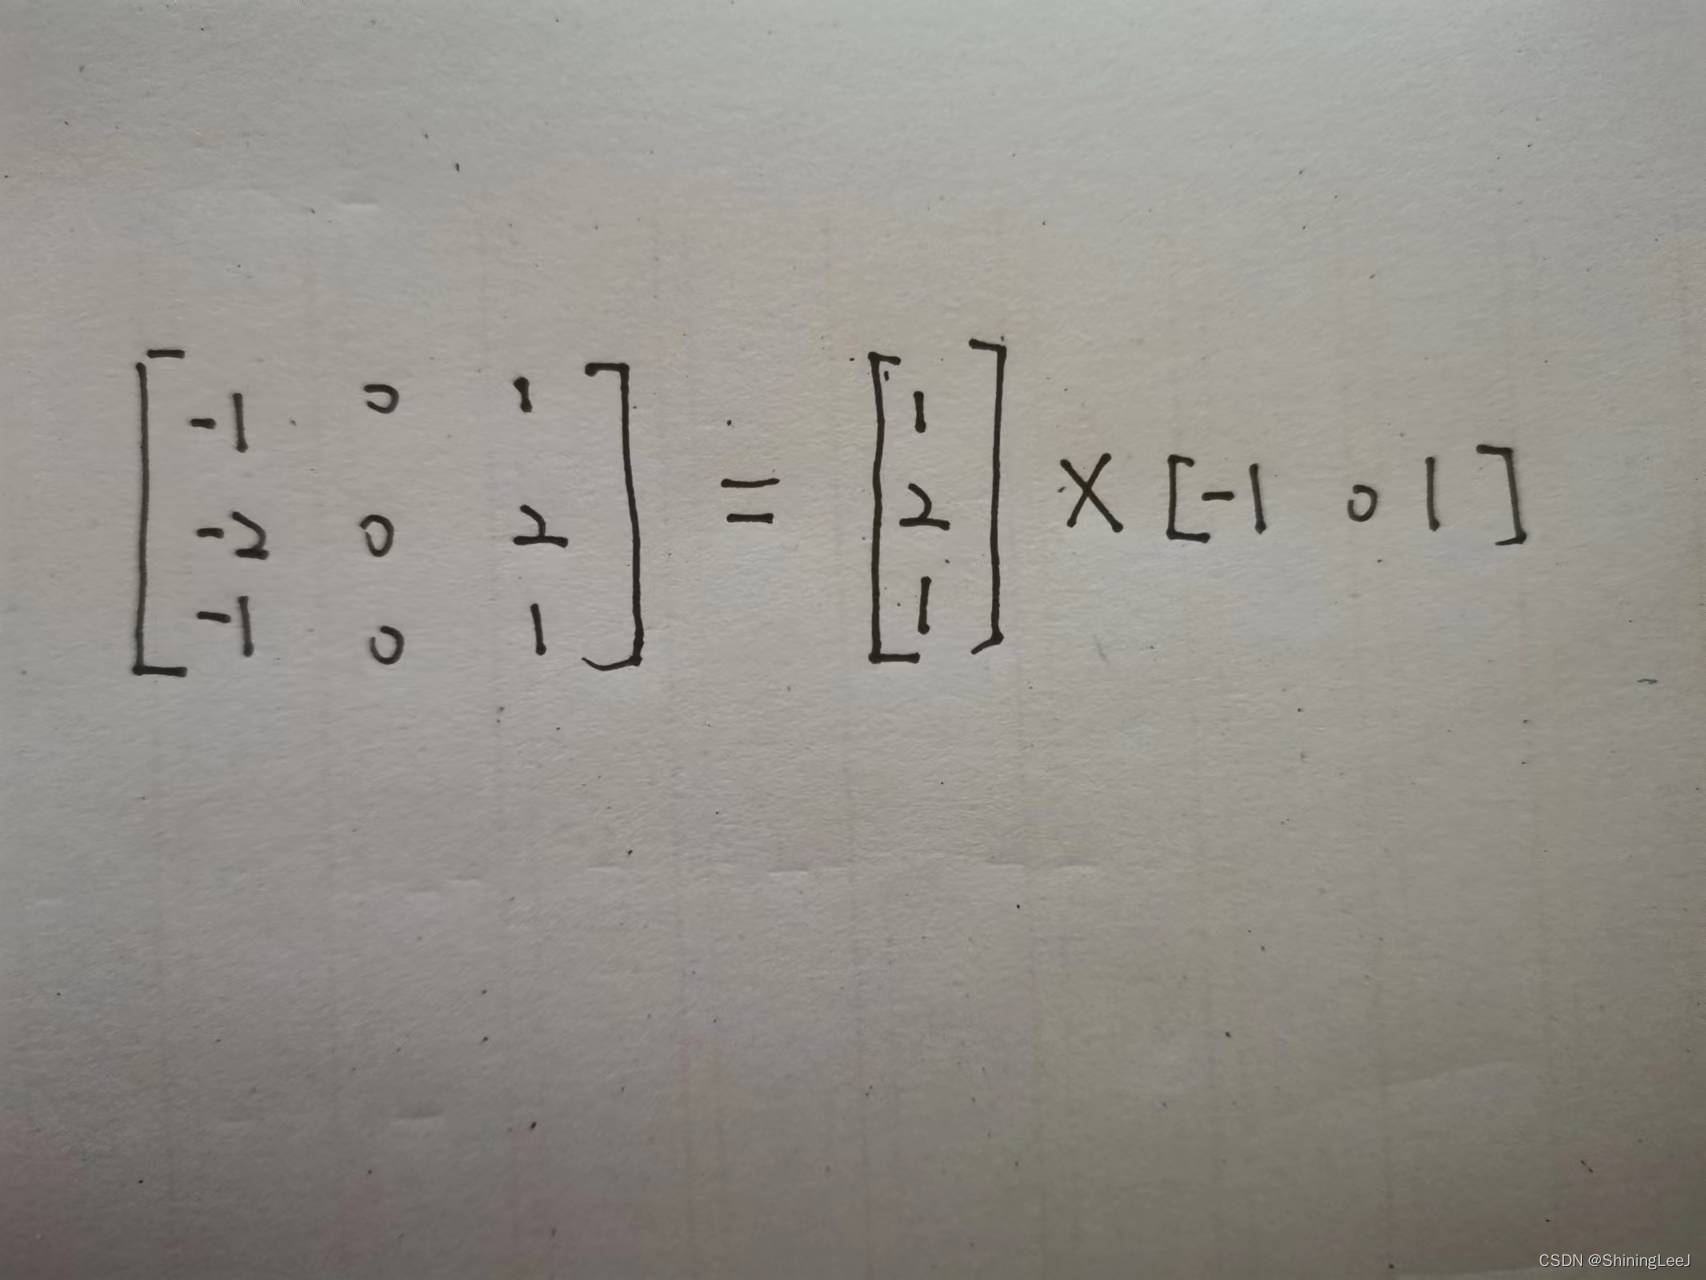 [ -1 0 1
-2 0 2
-1 0 1 ] = [ 1
2
1 ] × [ -1 0 1 ]
CSDN @ShiningLeeJ